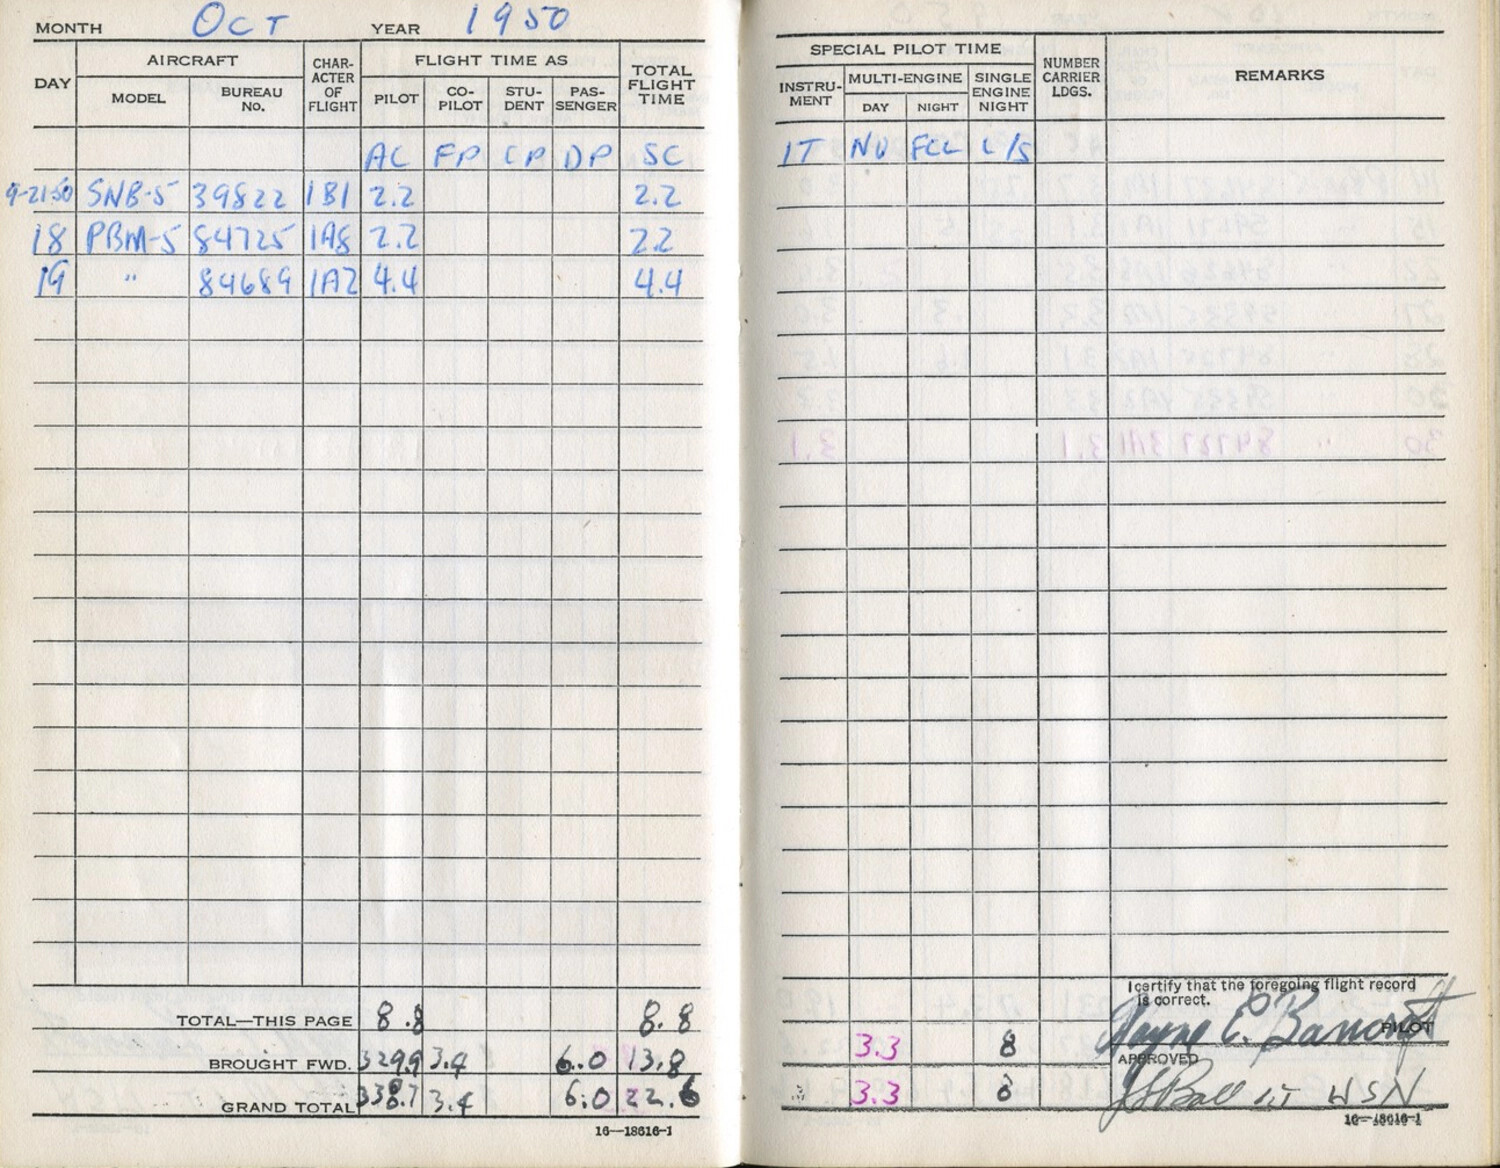 MONTH OCT YEAR 1950
DAY AIRCRAFT CHAR-ACTER OF FLIGHT FLIGHT TIME AS TOTAL FLIGHT TIME
MODEL BUREAU NO. PILOT CO-PILOT STU-DENT PAS-SENGER
AC FP CP DP SC
9-21-50 SNB-5 39822 1B1 2.2 2.2
18 PBM-5 84725 1A8 2.2 2.2
19 " 84689 1A2 4.4 4.4
TOTAL—THIS PAGE 8.8 8.8
BROUGHT FWD. 329.9 3.4 6.0 13.8
GRAND TOTAL 338.7 3.4 6.0 22.6
16—18616-1
SPECIAL PILOT TIME NUMBER CARRIER LDGS. REMARKS
INSTRU-MENT MULTI-ENGINE SINGLE ENGINE NIGHT
DAY NIGHT
IT NV FCL L/S
I certify that the foregoing flight record
is correct.
Wayne E. Bancroft PILOT
3.3 8
APPROVED
3.3 8
Ball LT USN
16—18616-1